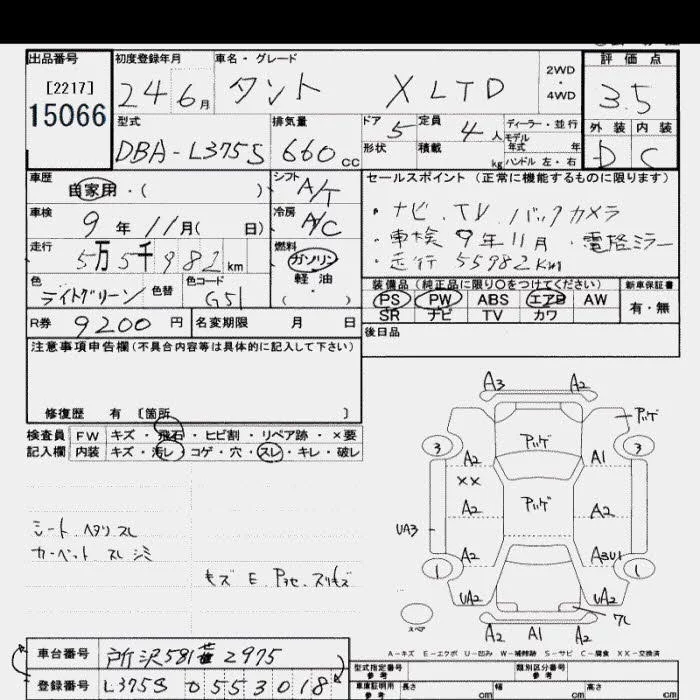 出品番号 初度登録年月 車名・グレード 2WD・4WD 評価点
[2217]
15066 24 6月 タント X LTD 3.5
型式 排気量 ドア 5 定員 4人 ディーラー・並行 外装 内装
DBA-L375S 660cc 形状 積載 kg モデル年式 年 ハンドル 左・右 D C
車歴 自家用・( ) シフト A/T セールスポイント (正常に機能するものに限ります)
車検 9年 11月( 日) 冷房 A/C ・ナビ. TV. バックカメラ
走行 5万5千982km 燃料 ガソリン ・車検9年11月 ・電格ミラー
軽油 ・走行55982Km
色 ライトグリーン 色替 色コード G51 ・( )
装備品 (純正品に限り○をつけてください) 新車保証書
PS PW ABS エアB AW 有・無
SR ナビ TV カワ
R券 9200円 名変期限 月 日 後日品
注意事項申告欄(不具合内容等は具体的に記入して下さい)
修復歴 有 〔箇所 〕
検査員 FW キズ・飛石・ヒビ割・リペア跡・×要
記入欄 内装 キズ・汚レ・コゲ・穴・スレ・キレ・破レ
A3 A2
アハゲ
3 アハゲ 3
A2 A1
XX
アハゲ
A2 A2
UA3
A2 A3U1
1 1
UA2 UA2
スペア A2 A1 A2
シート ヘタリ スレ
カーペット スレ シミ
キズ E アセ.スリキズ
A-キズ E-エクボ U-凹み W-補修跡 S-サビ C-腐食 XX-交換済
車台番号 所沢581 2975 型式指定番号 参考 類別区分番号 参考
登録番号 L375S 0553018 車庫証明用 参考 長さ cm 幅 cm 高さ cm